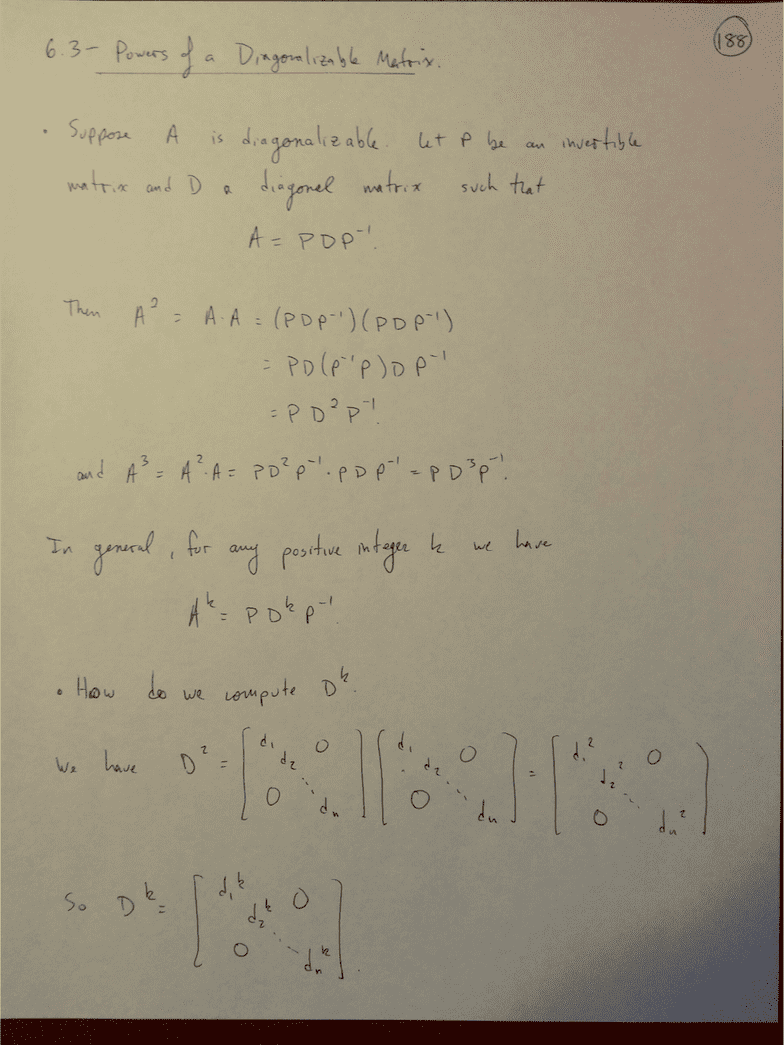 188
6.3 - Powers of a Diagonalizable Matrix.
• Suppose A is diagonalizable. Let P be an invertible
matrix and D a diagonal matrix such that
A = PDP⁻¹.
Then A² = A·A = (PDP⁻¹)(PDP⁻¹)
= PD(P⁻¹P)DP⁻¹
= PD²P⁻¹.
and A³ = A²·A = PD²P⁻¹·PDP⁻¹ = PD³P⁻¹.
In general, for any positive integer k we have
Aᵏ = PDᵏP⁻¹.
• How do we compute Dᵏ.
We have D² = [d₁ d₂ ⋱ dₙ 0 0] [d₁ d₂ ⋱ dₙ 0 0] = [d₁² d₂² ⋱ dₙ² 0 0]
So Dᵏ = [d₁ᵏ d₂ᵏ ⋱ dₙᵏ 0 0].